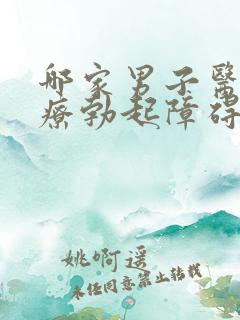 哪家男子醫
療勃起障碍
姚啊遥
未任同意禁止转载